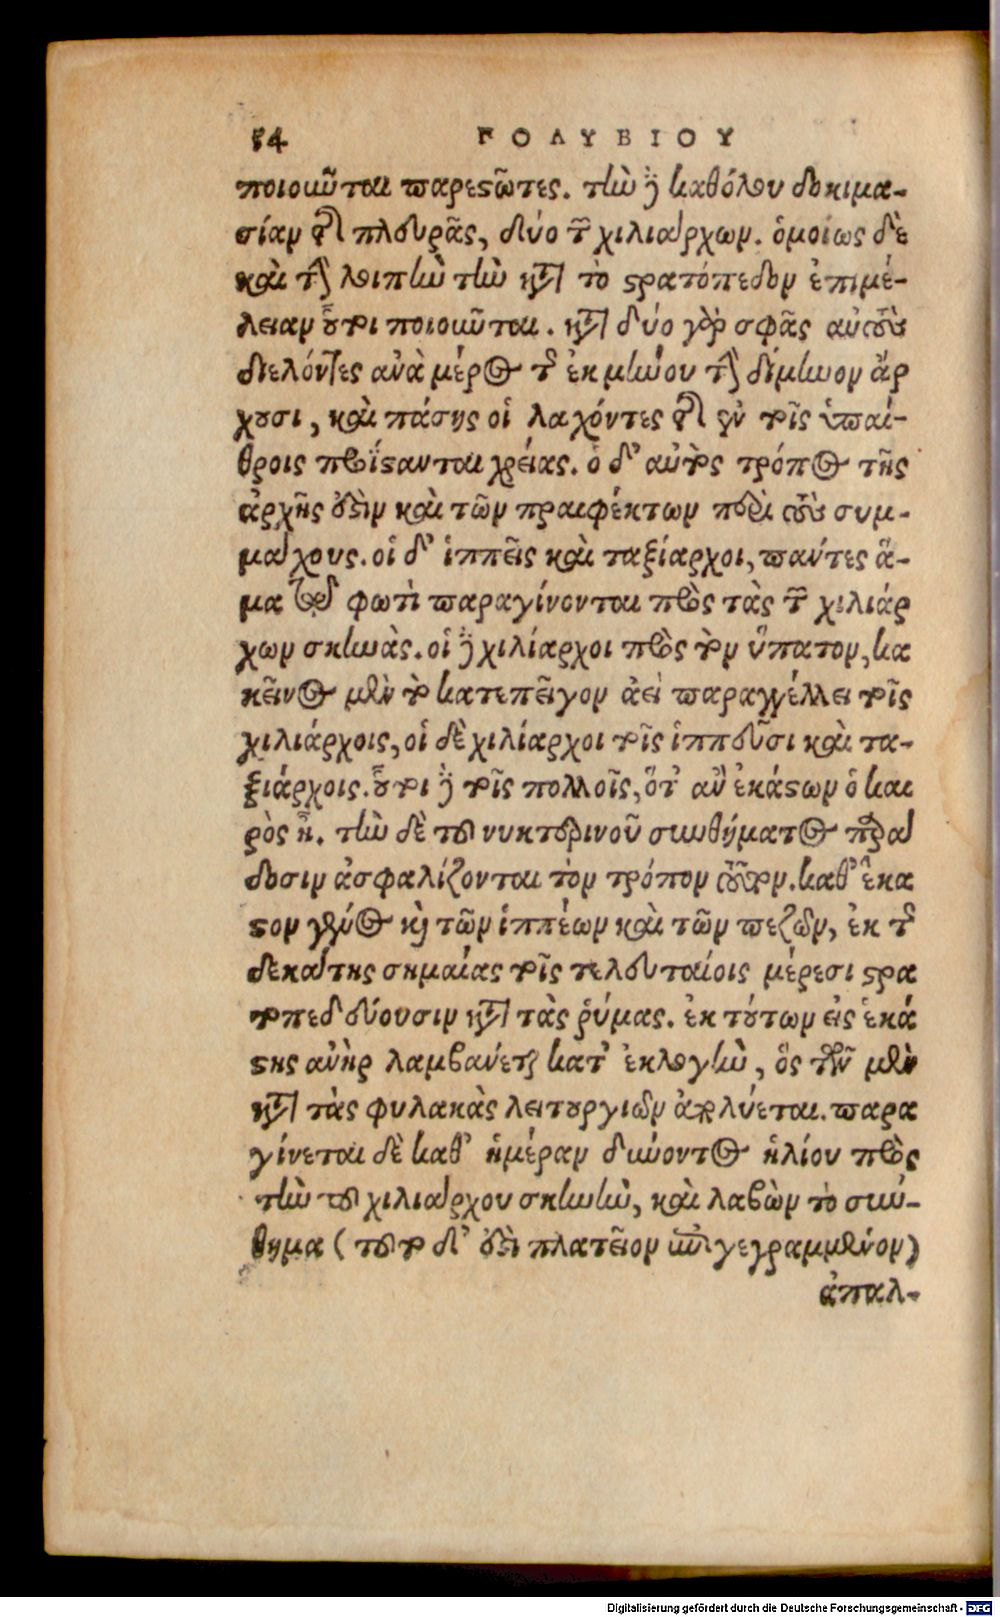 54 ΠΟΛΥΒΙΟΥ
ποιοῦνται παρεστῶτες. τὴν δὲ καθόλου δοκιμα-
σίαν τῆς πλευρᾶς, δύο τῶν χιλιάρχων. ὁμοίως δὲ
καὶ τὴν λοιπὴν τὴν κατὰ τὸ στρατόπεδον ἐπιμέ-
λειαν οὗτοι ποιοῦνται. κατὰ δύο γὰρ σφᾶς αὐτοὺς
διελόντες ἀνὰ μέρος τῆς ἑκμήνου τὴν δίμηνον ἄρ
χουσι, καὶ πάσης οἱ λαχόντες τῆς ἐν τοῖς ὑπαί-
θροις προΐστανται χρείας. ὁ δ' αὐτὸς τρόπος τῆς
ἀρχῆς ἐστιν καὶ τῶν πραιφέκτων περὶ τοὺς συμ-
μάχους. οἱ δ' ἱππεῖς καὶ ταξίαρχοι, πάντες ἅ-
μα τῷ φωτὶ παραγίνονται πρὸς τὰς τῶν χιλιάρ
χων σκηνὰς. οἱ δὲ χιλίαρχοι πρὸς τὸν ὕπατον, κα
κεῖνος μὲν τὸ κατεπεῖγον ἀεὶ παραγγέλλει τοῖς
χιλιάρχοις, οἱ δὲ χιλίαρχοι τοῖς ἱππεῦσι καὶ τα-
ξιάρχοις. οὗτοι δὲ τοῖς πολλοῖς, ὅτ' ἂν ἑκάστων ὁ και
ρὸς ᾖ. τὴν δὲ τοῦ νυκτερινοῦ συνθήματος παρά
δοσιν ἀσφαλίζονται τὸν τρόπον τοῦτον. καθ' ἕκα
στον γένος καὶ τῶν ἱππέων καὶ τῶν πεζῶν, ἐκ τῆς
δεκάτης σημαίας τοῖς τελευταίοις μέρεσι στρα
τοπεδεύουσιν κατὰ τὰς ῥύμας. ἐκ τούτων εἷς ἑκά
στης ἀνὴρ λαμβάνεται κατ' ἐκλογὴν, ὃς τῶν μὲν
κατὰ τὰς φυλακὰς λειτουργιῶν ἀπολύεται. παρα
γίνεται δὲ καθ' ἡμέραν δύνοντος ἡλίου πρὸς
τὴν τοῦ χιλιάρχου σκηνὴν, καὶ λαβὼν τὸ σύν-
θημα (τοῦτο δ' ἐστὶ πλατεῖον ἐπιγεγραμμένον)
ἀπαλ-
Digitalisierung gefördert durch die Deutsche Forschungsgemeinschaft - DFG